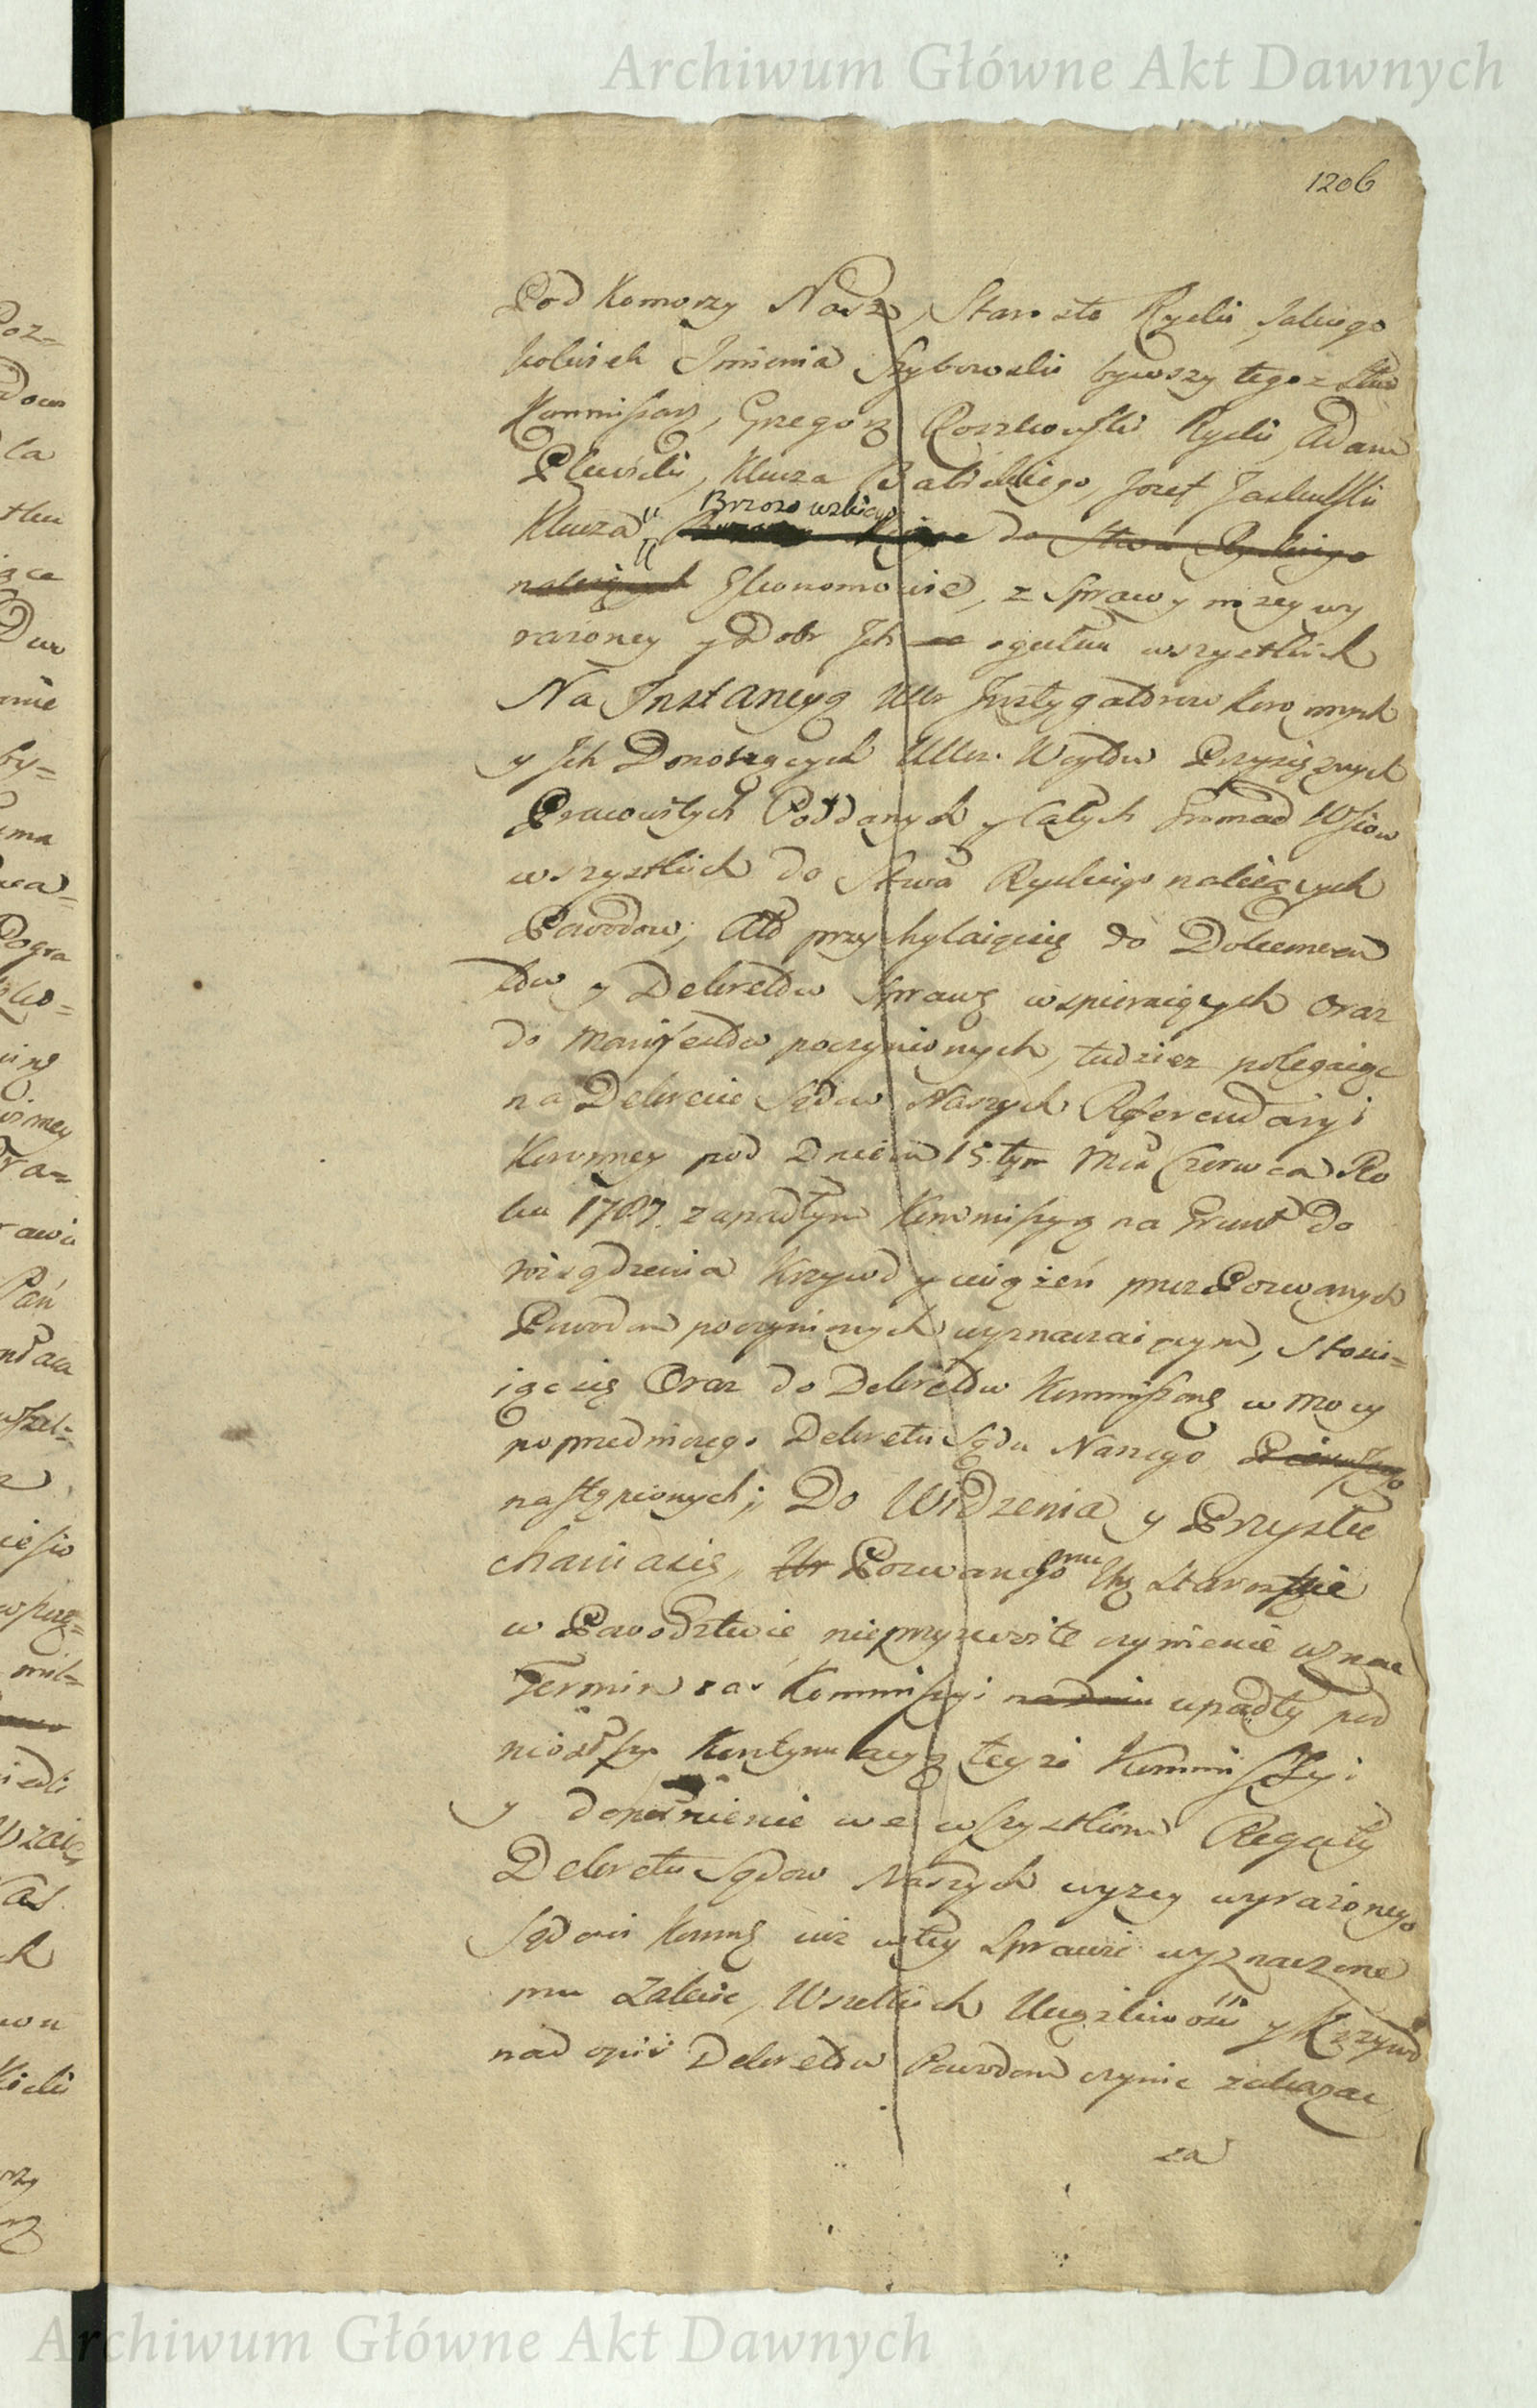 Archiwum Główne Akt Dawnych
1206
Pod Komorzy Nasz, Starosta Rycki, Jakiego
kolwiek Imienia Szybowski bywszy tegoż Stwa
Kommissarz, Grzegorz Roszkowski Rycki, Adam
Plewski, Klucza Babickiego, Jozef Jaskulski
Klucza Brzozowskiego do Stwa Ryckiego
należących Ekonomowie, z Sprawy niżey wy
rażoney y Dobr Ich ogułem wszystkich
Na Instancyą Urr Instygatorow koronnych
y Ich Donoszących Uccz. Woytow Przysiężnych
Pracowitych Poddanych y Całych Gromad Wsiow
wszystkich do Stwa Ryckiego należących
Powodow; Ato przychylaiąc się do Dokumen
tow y Dekretow Sprawę wspieraiących oraz
do Manifestow poczynionych, tudzież polegaiąc
na Dekrecie Sądow Naszych Referendaryi
Koronney pod Dniem 15. tym Mca Czerwca Ro
ku 1787. zapadłym Kommissyą na Grunt do
rozsądzenia Krzywd y uciążeń przez Pozwanych
Powodom poczynionych wyznaczaiącym, stosu=
iąc się Oraz do Dekretow Kommissarz w Mocy
poprzedniczego Dekretu Sądu Naszego
nastąpionych; Do Widzenia y Przysłu
chania się, Ur Pozwanego mu Urz Staroście
w Powodztwie nieprzyzwoite czynienie uznać
Termin zaś Kommissyi na dniu upadły pod
niosłszy Kontynuacyą teyże Kommissyi
y dopełnienie we wszystkiem Reguły
Dekretu Sądow Naszych wyżey wyrażonego
Sądowi Kommz iuż w tey Sprawie wyznaczone
mu zalecić, Wszelkich Uciążliwości y Krzywd
nad opis Dekretow Powodom czynić zakazać
za
Archiwum Główne Akt Dawnych